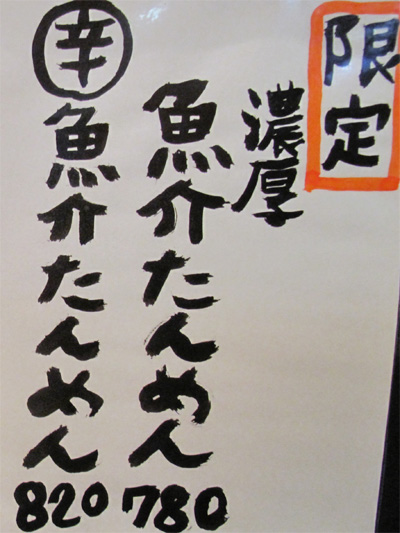 限定
濃厚
魚介たんめん 780
㊕魚介たんめん 820